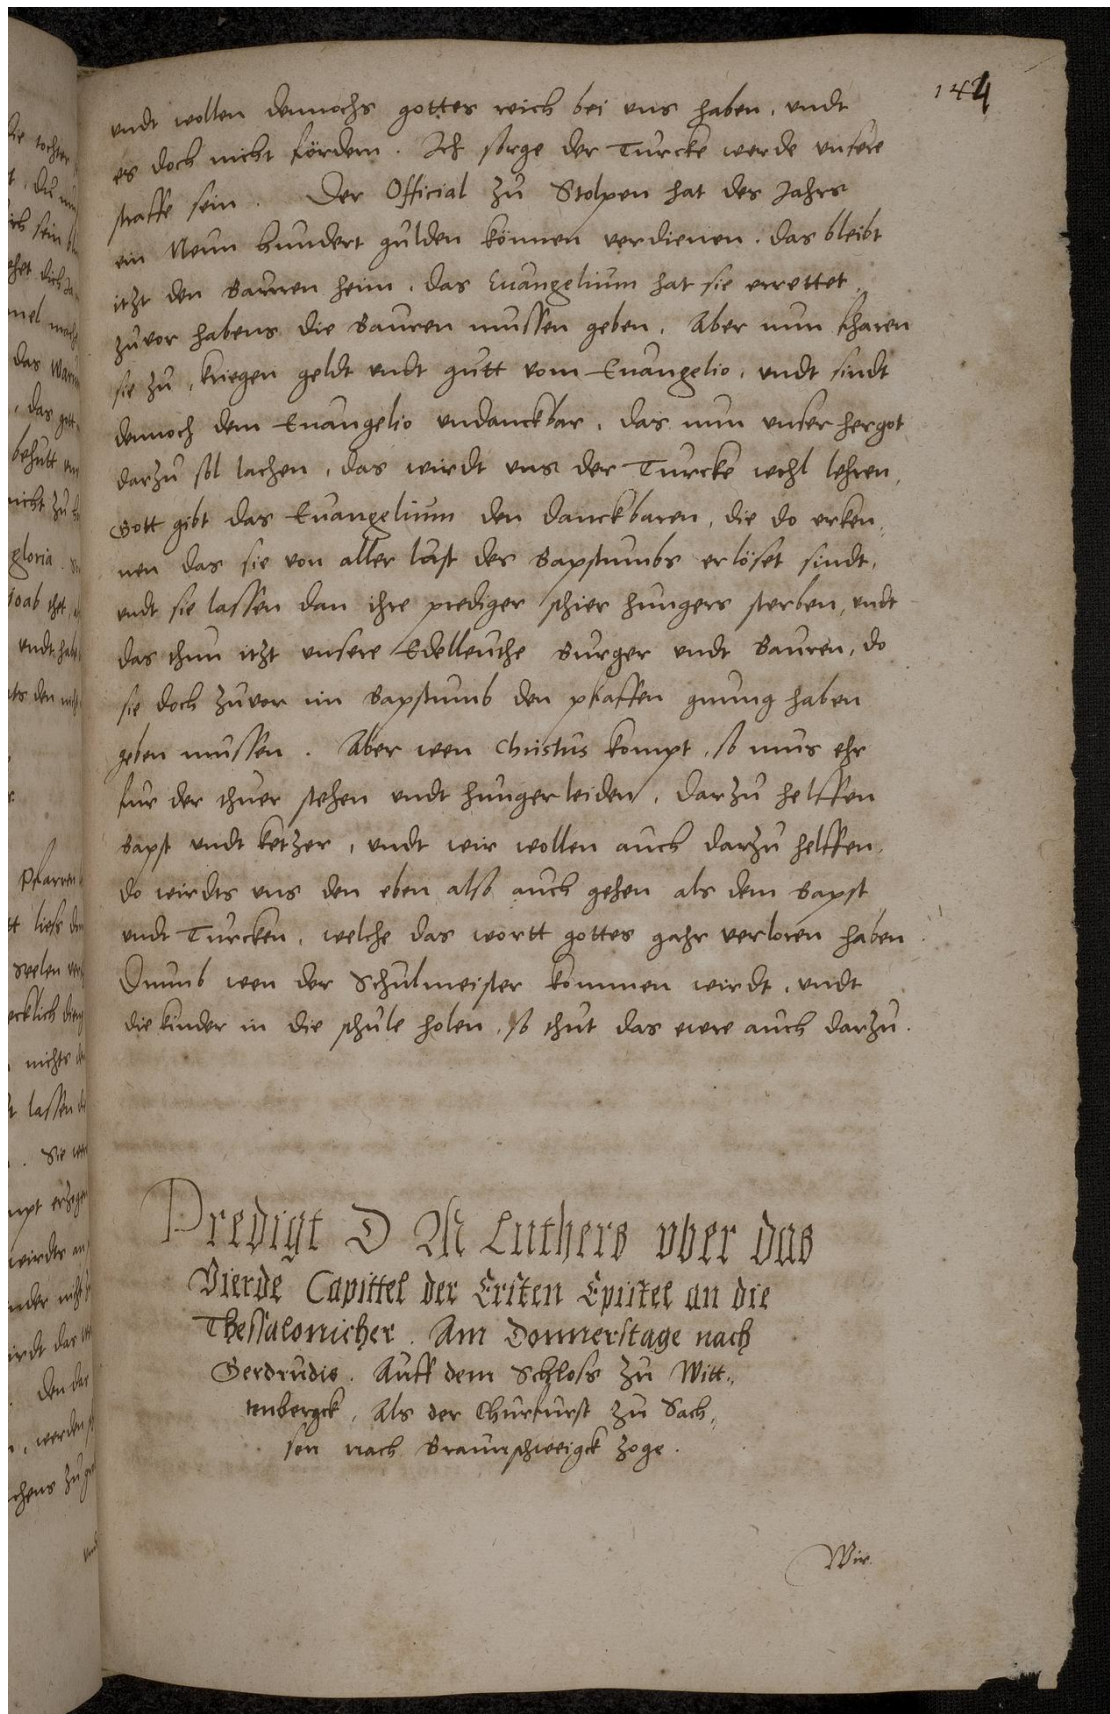 144
vndt wollen dennochs gottes reich bei vns haben, vndt
es doch nicht fördern. Ich sorge der Turcke werde vnsere
straffe sein. Der Official zu Stolpen hat des Jahrs
ein Neun hundert gulden können verdienen. das bleibt
itzt den Bauren heim, das Euangelium hat sie errettet,
zuvor habens die Bauren mussen geben. Aber nun scharen
sie zu, kriegen geldt vndt gutt vom Euangelio, vndt sindt
dennoch dem Euangelio vndanckbar, das nun vnser hergot
darzu sol lachen, das wirdt vns der Turcke wohl lehren,
Gott gibt das Euangelium den danckbaren, die do erken„
nen das sie von aller last des Bapstumbs erlöset sindt,
vndt sie lassen dan ihre prediger schier hungers sterben, vndt
das thun itzt vnsere Edelleuthe Burger vndt Bauren, do
sie doch zuvor im Bapstumb den pfaffen gnung haben
geben mussen. Aber wen Christus kompt, so mus ehr
fur der thuer stehen vndt hunger leiden, darzu helffen
Bapst vndt ketzer, vndt wir wollen auch darzu helffen,
do wirdts vns den eben also auch gehen als dem Bapst
vndt Turcken, welche das wortt gottes gahr verloren haben
Drumb wen der Schulmeister kommen wirdt, vndt
die kinder in die schule holen, so thut das ewre auch darzu.
Predigt D M Luthers vber das
Vierde Capittel der Ersten Epistel an die
Thessalonicher. Am Donnerstage nach
Gerdrudis. Auff dem Schloss zu Witt„
tenbergck, Als der Churfurst zu Sach„
sen nach Braunschweigck zoge.
Wir